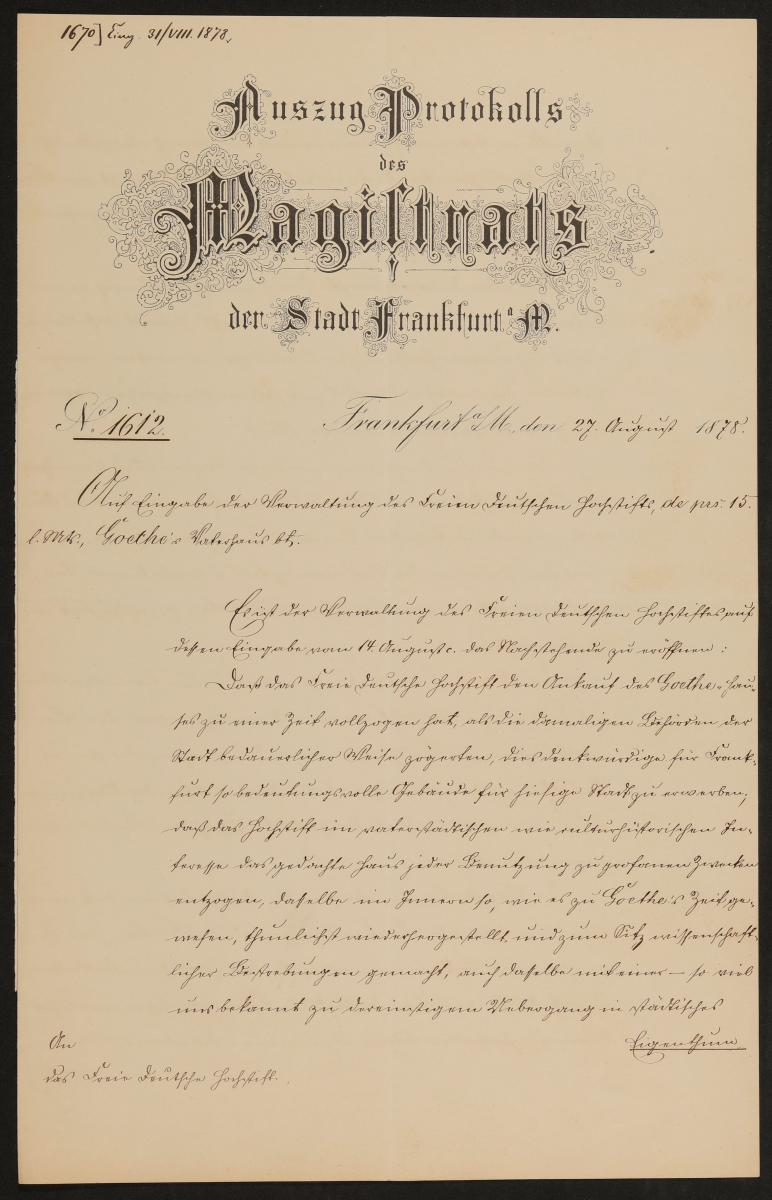 1670] Eing. 31/VIII. 1878.
Auszug Protokolls
des
Magistrats
der Stadt Frankfurt a M.
No. 1612.
Frankfurt a/M., den 27. August 1878.
Auf Eingabe der Verwaltung des Freien Deutschen Hochstifts, de prs. 15.
l. Mts., Goethe's Vaterhaus btr.
Es ist der Verwaltung des Freien Deutschen Hochstiftes auf
dessen Eingabe vom 14. August c. das Nachstehende zu eröffnen:
Daß das Freie Deutsche Hochstift den Ankauf des Goethe-Hau-
ses zu einer Zeit vollzogen hat, als die damaligen Behörden der
Stadt bedauerlicher Weise zögerten, dies denkwürdige für Frank-
furt so bedeutungsvolle Gebäude für hiesige Stadt zu erwerben;
daß das Hochstift im vaterstädtischen wie culturhistorischen In-
teresse das gedachte Haus jeder Benutzung zu profanen Zwecken
entzogen, dasselbe im Innern so, wie es zu Goethe's Zeit ge-
wesen, thunlichst wiederhergestellt und zum Sitz wissenschaft-
licher Bestrebungen gemacht, auch dasselbe mit einer — so viel
uns bekannt zu dereinstigem Uebergang in städtisches
Eigenthum
An
das Freie Deutsche Hochstift.